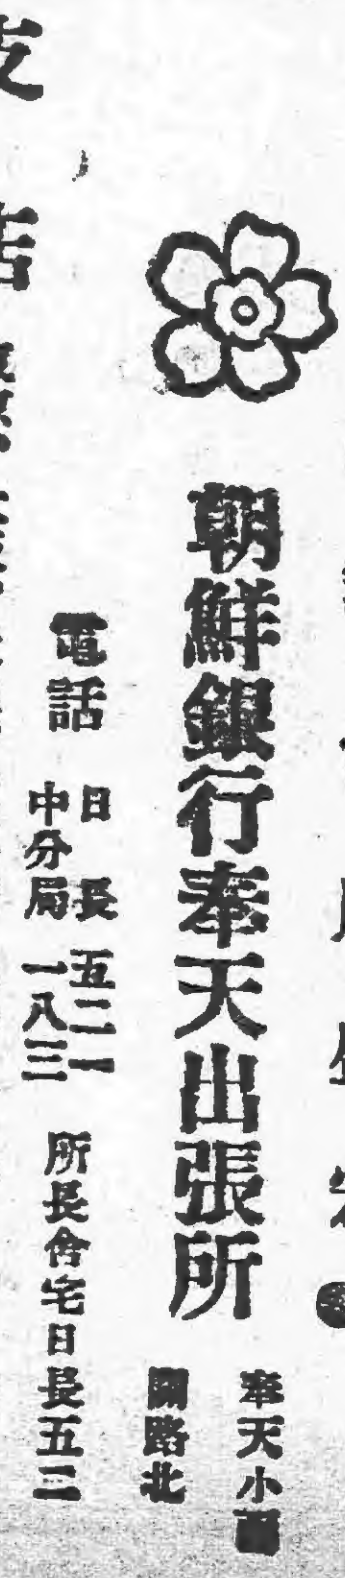 朝鮮銀行奉天出張所
奉天小
關路北
電話
日長 五二一
中分局 一八三
所長舍宅日長五三
支店